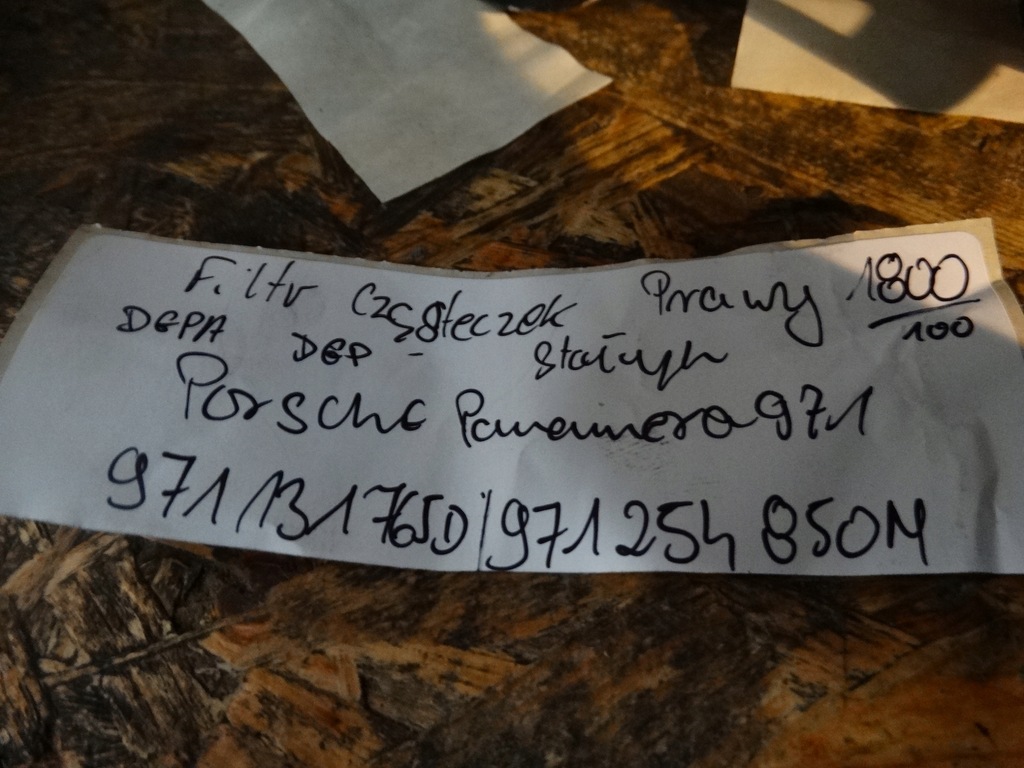 Filtr cząsteczek Prawy 1800
DEPA DEP - Stałych 100
Porsche Panamera 971
971131765D/971254850M